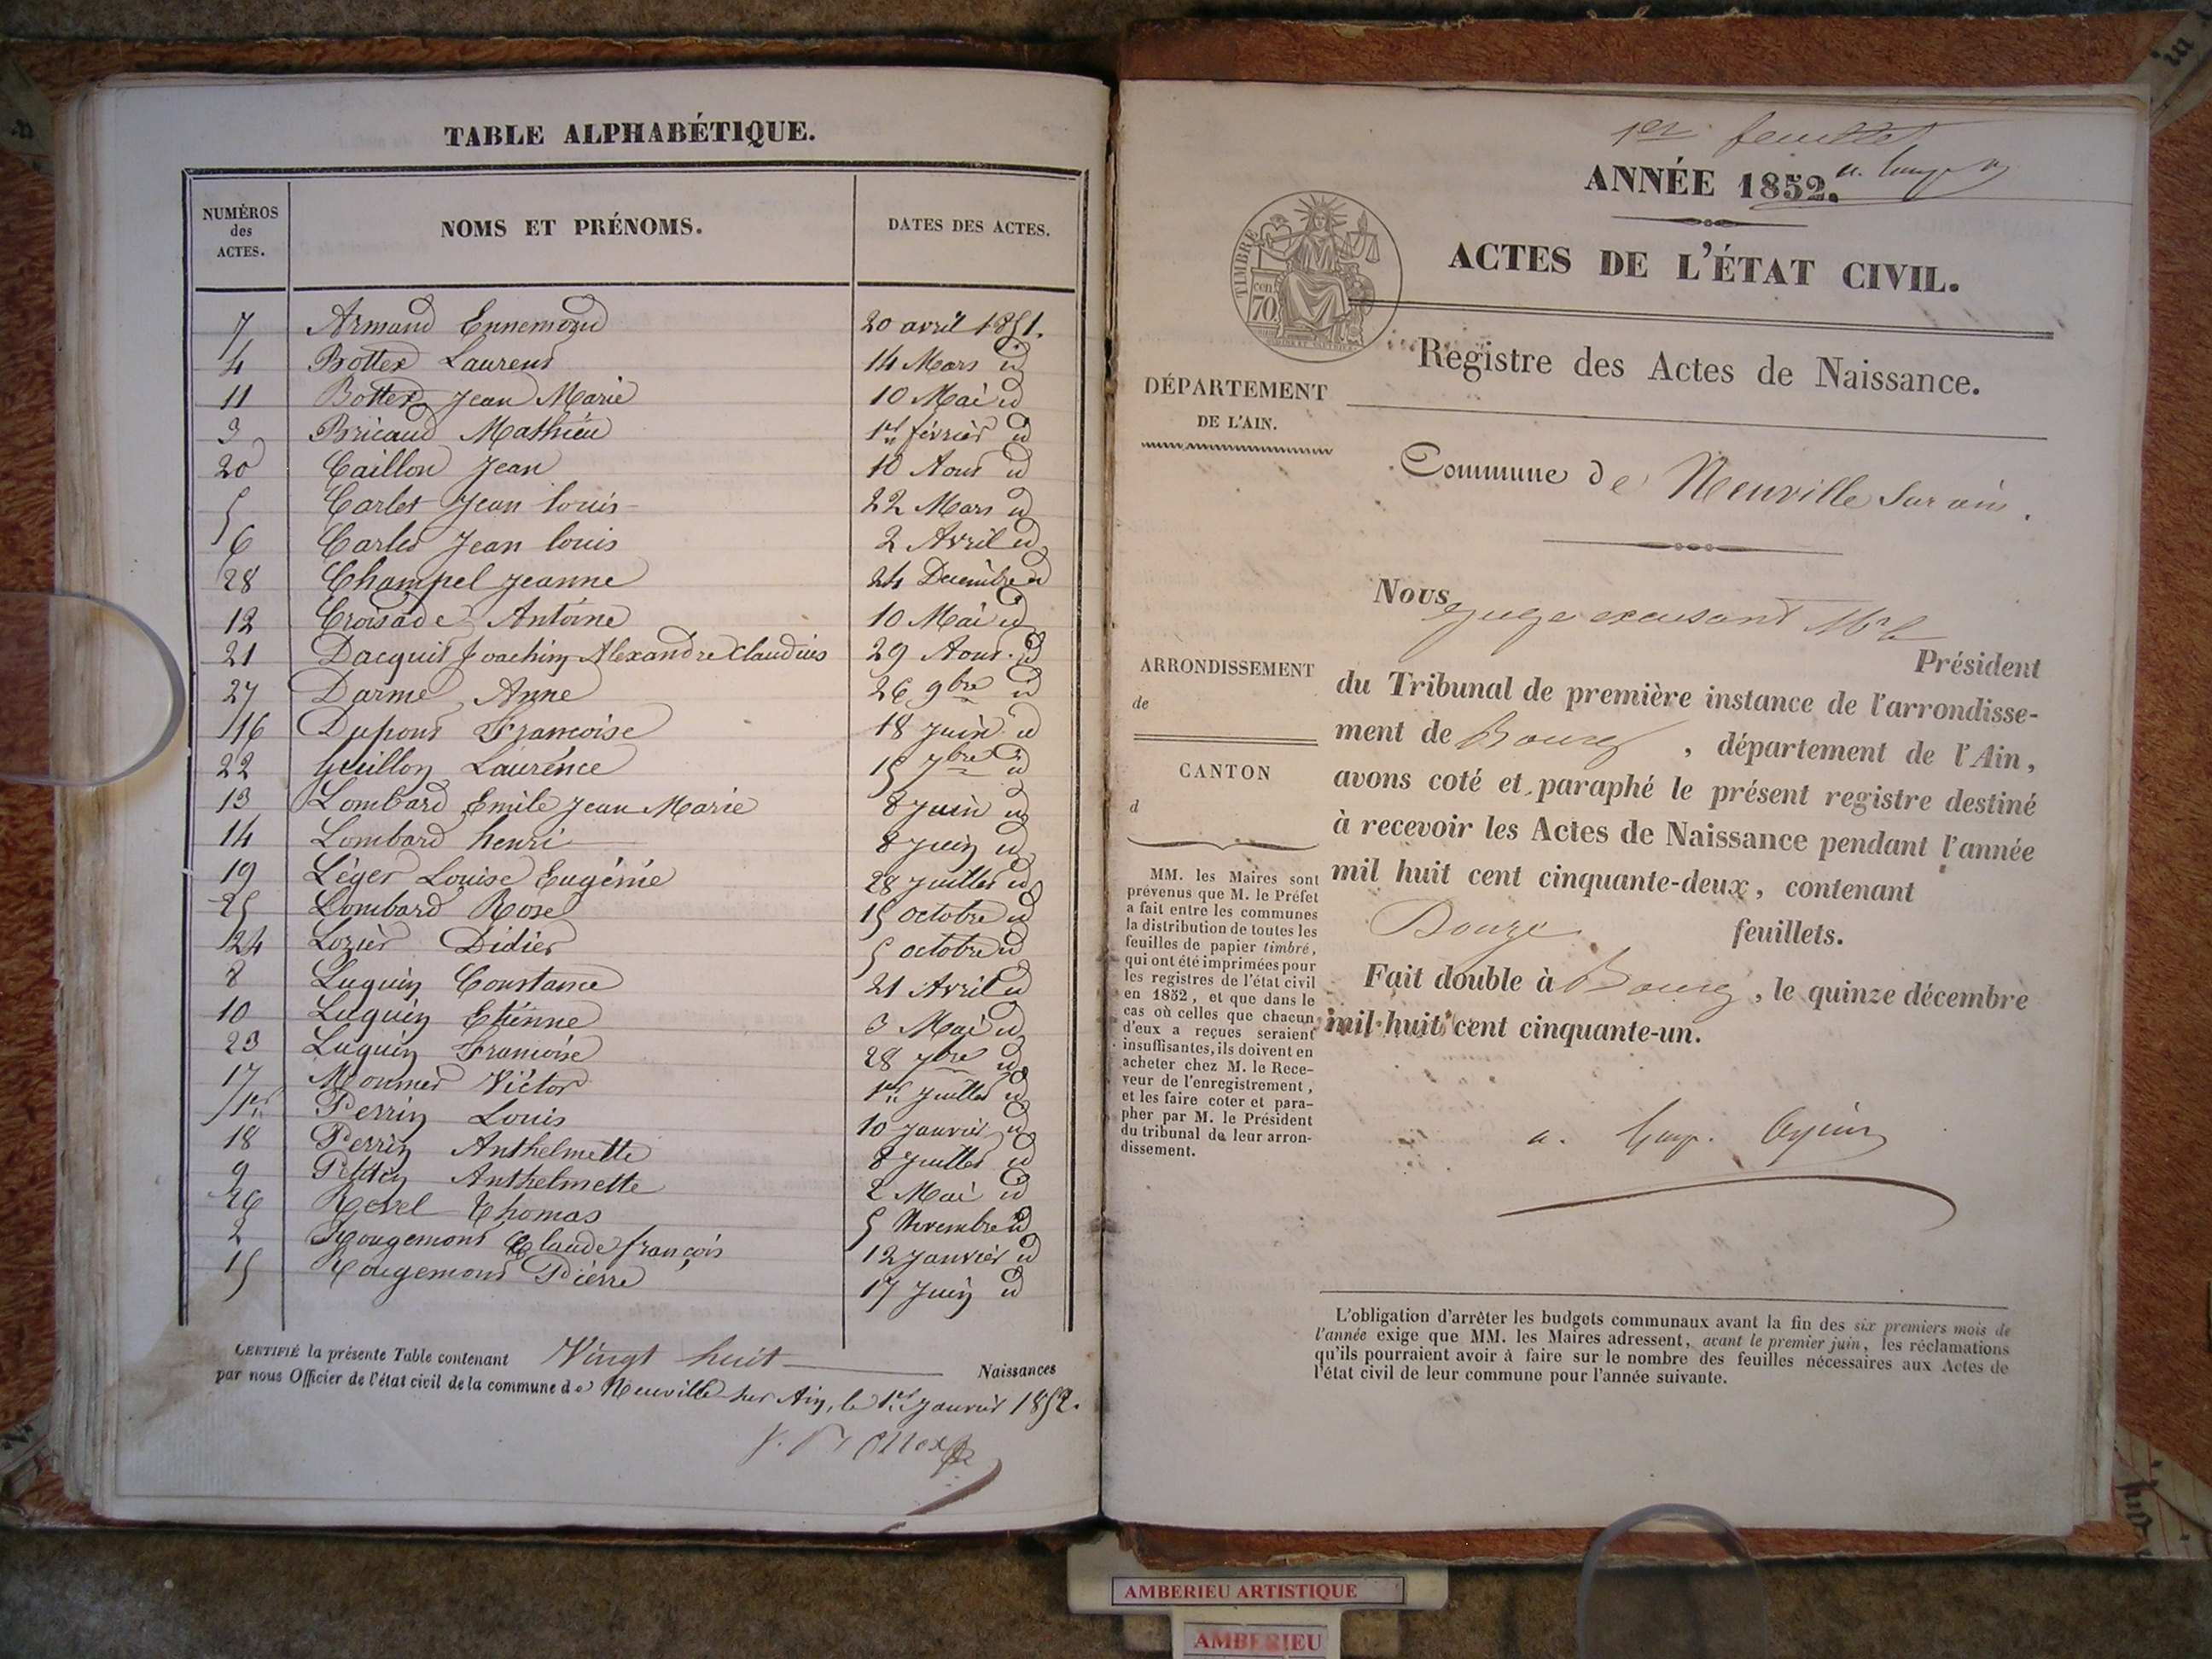 TABLE ALPHABÉTIQUE.
NUMÉROS des ACTES.
NOMS ET PRÉNOMS.
DATES DES ACTES.
7 Armand Ennemond 20 avril 1851.
4 Bottex Laurent 14 Mars id
11 Bottex Jean Marie 10 Mai id
3 Bricaud Mathieu 1er février id
20 Caillon Jean 10 Aout id
5 Carlet Jean louis 22 Mars id
6 Carlet Jean louis 2 Avril id
28 Champel Jeanne 24 Decembre id
12 Croisade Antoine 10 Mai id
21 Dacquit Joachim Alexandre Claudius 29 Aout id
27 Darme Anne 26 9bre id
16 Dupont Francoise 18 juin id
22 Guillon Laurence 15 7bre id
13 Lombard Emile Jean Marie 8 juin id
14 Lombard henri 8 juin id
19 Léger Louise Eugénie 28 juillet id
25 Lombard Rose 15 octobre id
24 Lozier Didier 5 octobre id
8 Luguin Constance 21 Avril id
10 Luguin Etienne 3 Mai id
23 Luguin Francoise 28 7bre id
17 Monnier Victor 1er juillet id
1er Perrin Louis 10 janvier id
18 Perrin Anthelmette 8 juillet id
9 Anthelmette 2 Mai id
26 Revel Thomas 5 Novembre id
2 Rougemont Claude françois 12 janvier id
15 Rougemont Pierre 17 Juin id
CERTIFIÉ la présente Table contenant Vingt huit Naissances
par nous Officier de l'état civil de la commune de Neuville sur Ain, le 1er janvier 1852.
1er feuillet
ANNÉE 1852.
ACTES DE L'ÉTAT CIVIL.
TIMBRE
70 cen
Registre des Actes de Naissance.
DÉPARTEMENT
DE L'AIN.
Commune de Neuville sur ain.
Nous juge excusant Mr le
Président
ARRONDISSEMENT
de
CANTON
d
du Tribunal de première instance de l'arrondisse-
ment de Bourg, département de l'Ain,
avons coté et paraphé le présent registre destiné
à recevoir les Actes de Naissance pendant l'année
mil huit cent cinquante-deux, contenant
Douze feuillets.
Fait double à Bourg, le quinze décembre
mil huit cent cinquante-un.
MM. les Maires sont
prévenus que M. le Préfet
a fait entre les communes
la distribution de toutes les
feuilles de papier timbré,
qui ont été imprimées pour
les registres de l'état civil
en 1852, et que dans le
cas où celles que chacun
d'eux a reçues seraient
insuffisantes, ils doivent en
acheter chez M. le Rece-
veur de l'enregistrement,
et les faire coter et para-
pher par M. le Président
du tribunal de leur arron-
dissement.
L'obligation d'arrêter les budgets communaux avant la fin des six premiers mois de
l'année exige que MM. les Maires adressent, avant le premier juin, les réclamations
qu'ils pourraient avoir à faire sur le nombre des feuilles nécessaires aux Actes de
l'état civil de leur commune pour l'année suivante.
AMBERIEU ARTISTIQUE
AMBERIEU